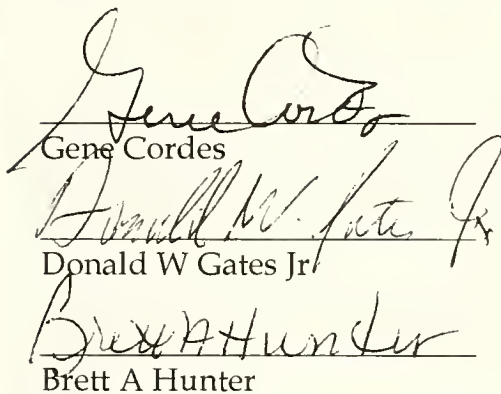 Gene Cordes
Gene Cordes
Donald W. Gates Jr
Donald W Gates Jr
Brett A Hunter
Brett A Hunter